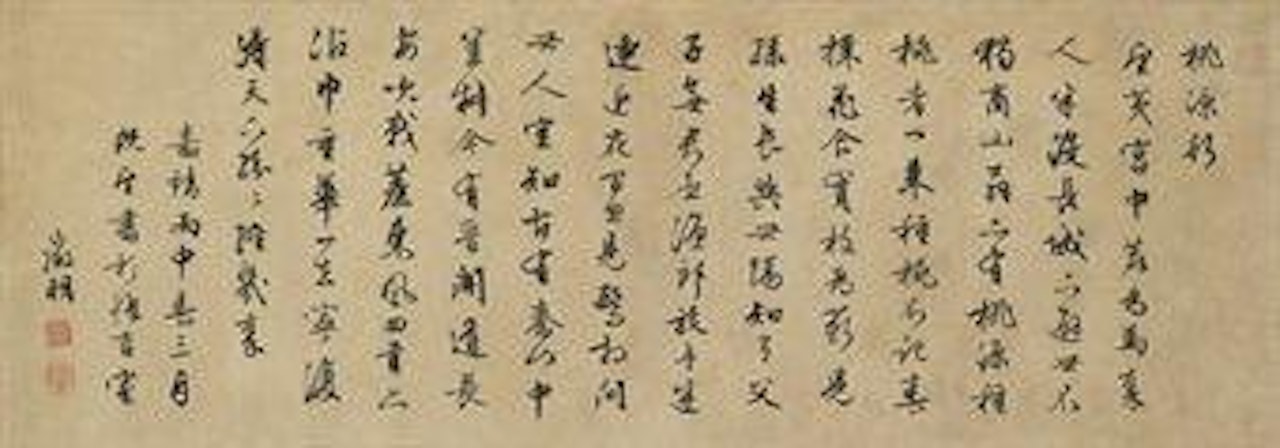 桃源行
望夷宮中鹿為馬秦
人半沒長城下避世不
獨商山翁亦有桃源種
桃者一來種桃不記春
採花食實枝為薪兒
孫生長與世隔知有父
子無君臣漁郎放舟迷
遠近花間忽見驚相問
世人空知古有秦山中
豈料今有晉聞道長
安吹戰塵東風回首亦
沾巾重華一去寧復
得天下紛紛經幾秦
嘉靖丙申春三月
既望書於悟言室
徵明